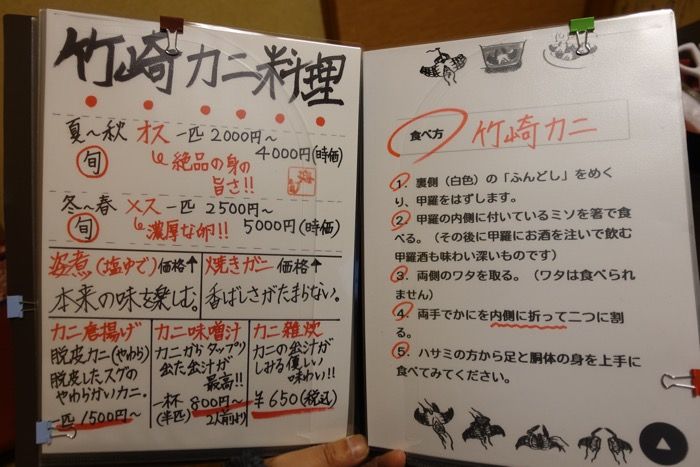 竹崎カニ料理
夏〜秋 オス 一匹 2000円〜
4000円(時価)
旬
絶品の身の
旨さ!!
冬〜春 メス 一匹 2500円〜
5000円(時価)
旬
濃厚な卵!!
姿煮(塩ゆで) 価格↑
本来の味を楽しむ。
焼きガニ 価格↑
香ばしさがたまらない。
カニ唐揚げ
脱皮カニ(やわら)
脱皮したスグの
やわらかいカニ。
一匹 1500円〜
カニ味噌汁
カニからタップリ
出た出汁が
最高!!
一杯 800円〜
(半匹) 2人前より
カニ雑炊
カニの出汁が
しみる優しい
味わい!!
¥650(税込)
食べ方 竹崎カニ
1. 裏側(白色)の「ふんどし」をめく
り、甲羅をはずします。
2. 甲羅の内側に付いているミソを箸で食
べる。(その後に甲羅にお酒を注いで飲む
甲羅酒も味わい深いものです)
3. 両側のワタを取る。(ワタは食べられ
ません)
4. 両手でかにを内側に折って二つに割
る。
5. ハサミの方から足と胴体の身を上手に
食べてみてください。